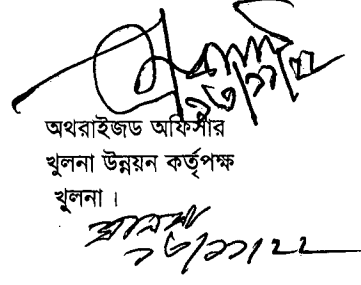 অথরাইজড অফিসার
খুলনা উন্নয়ন কর্তৃপক্ষ
খুলনা।
১৩/১১/২২